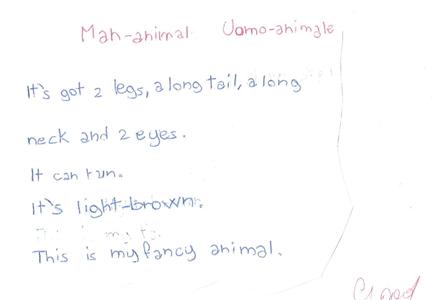 Man-animal Uomo-animale
It's got 2 legs, a long tail, a long
neck and 2 eyes.
It can run.
It's light-brown.
This is my fancy animal.